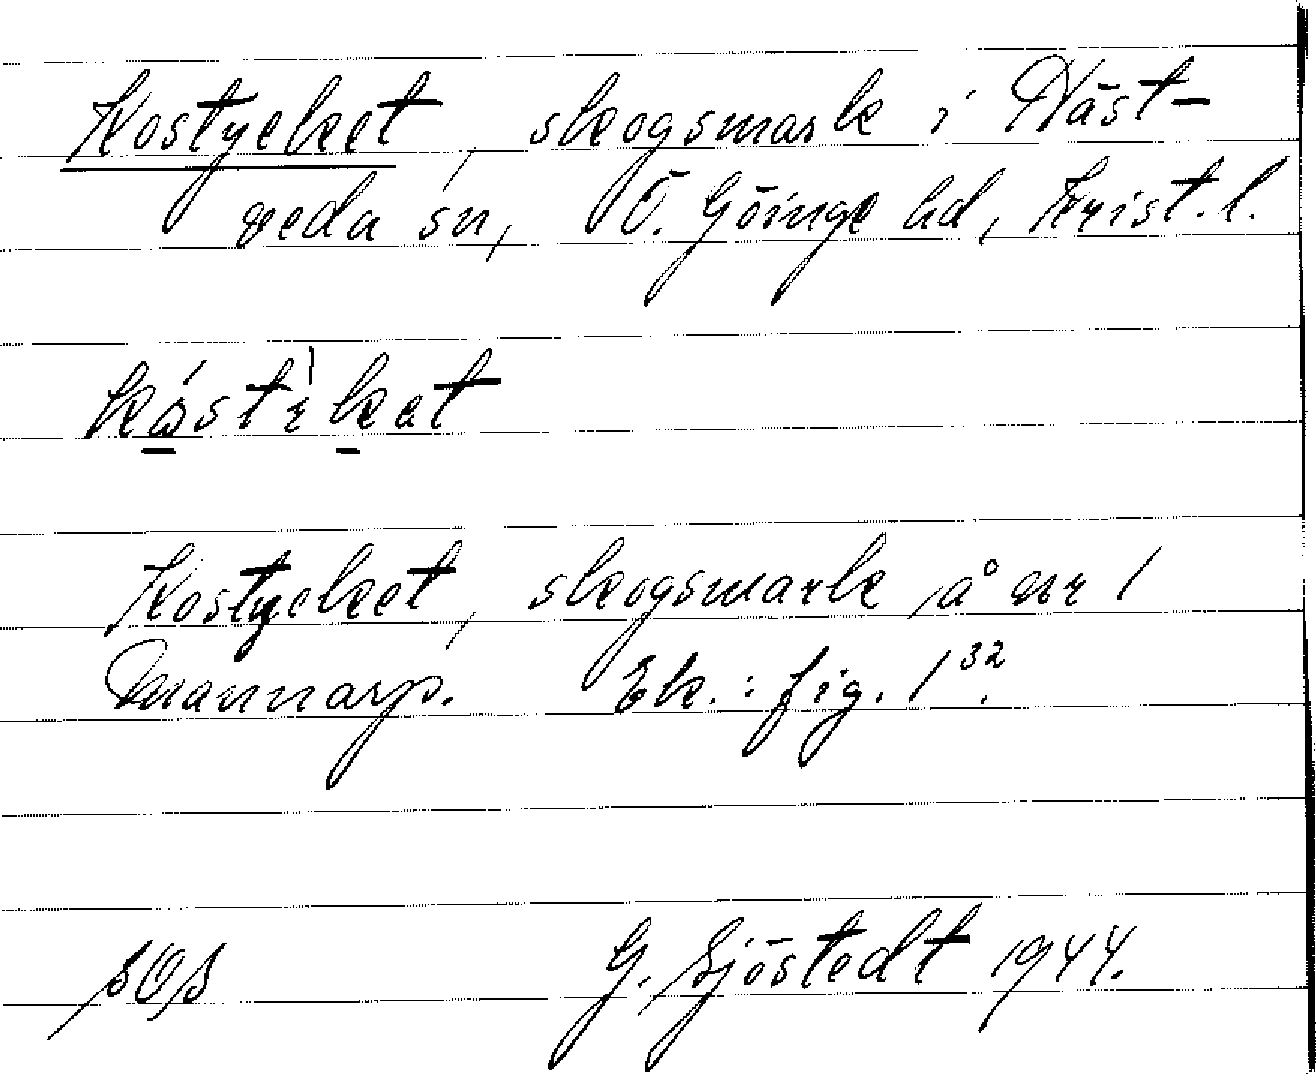 Kostycket, skogsmark i Näst-
veda sn, Ö. Göinge hd, Krist. l.
Kostycket, skogsmark å nr 1
Mannarp. Ek.: fig. 1³².
SOS G. Sjöstedt 1944.